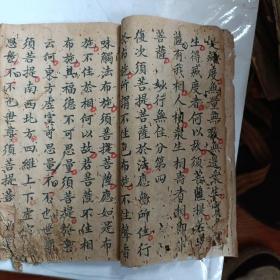 滅度無量無數無邊眾生
生得滅度者何以故須菩提若菩
薩有我相人相眾生相壽者相即非
菩薩 妙行無住分第四
復次須菩提菩薩於法應無所住行
於布施所謂不住色布施不住聲香
味觸法布施須菩提菩薩應如是布
施不住於相何以故若菩薩不住相
布施其福德不可思量須菩提於意
云何東方虛空可思量不不也世尊
須菩提南西北方四維上下虛空
思量不不也世尊須菩提